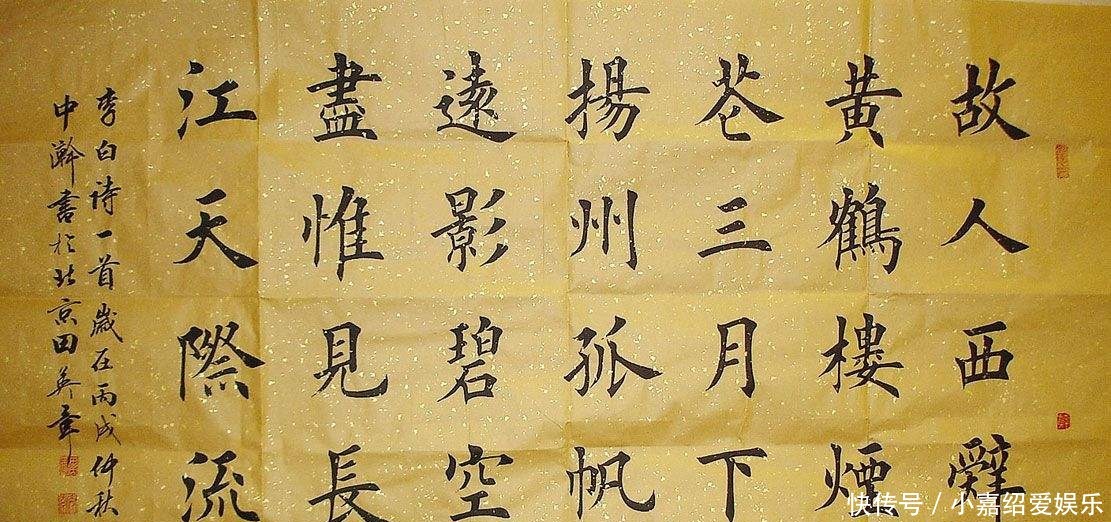 故人西辭
黄鶴樓煙
花三月下
揚州孤帆
遠影碧空
盡惟見長
江天際流
李白诗一首歲在丙戌仲秋
中瀚書於北京田英章
快传号 / 小嘉绍爱娱乐